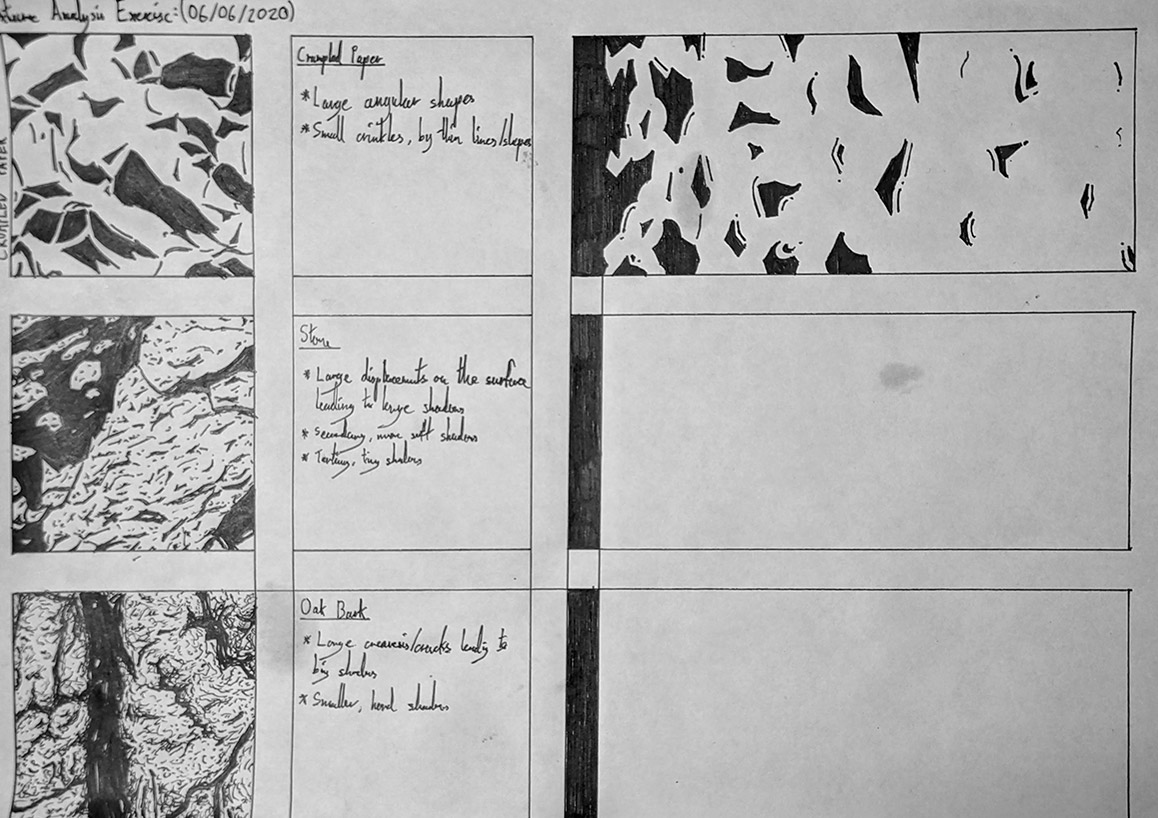 Analysis Exercise: (06/06/2020)
CRUMPLED PAPER
Crumpled Paper
* Large angular shapes
* Small crinkles, by thin lines/shapes
Stone
* Large displacements on the surface
leading to large shadows
* Secondary, more soft shadows
* Tertiary, tiny shadows
Oak Bark
* Large creases/cracks leading to
big shadows
* Smaller, hard shadows